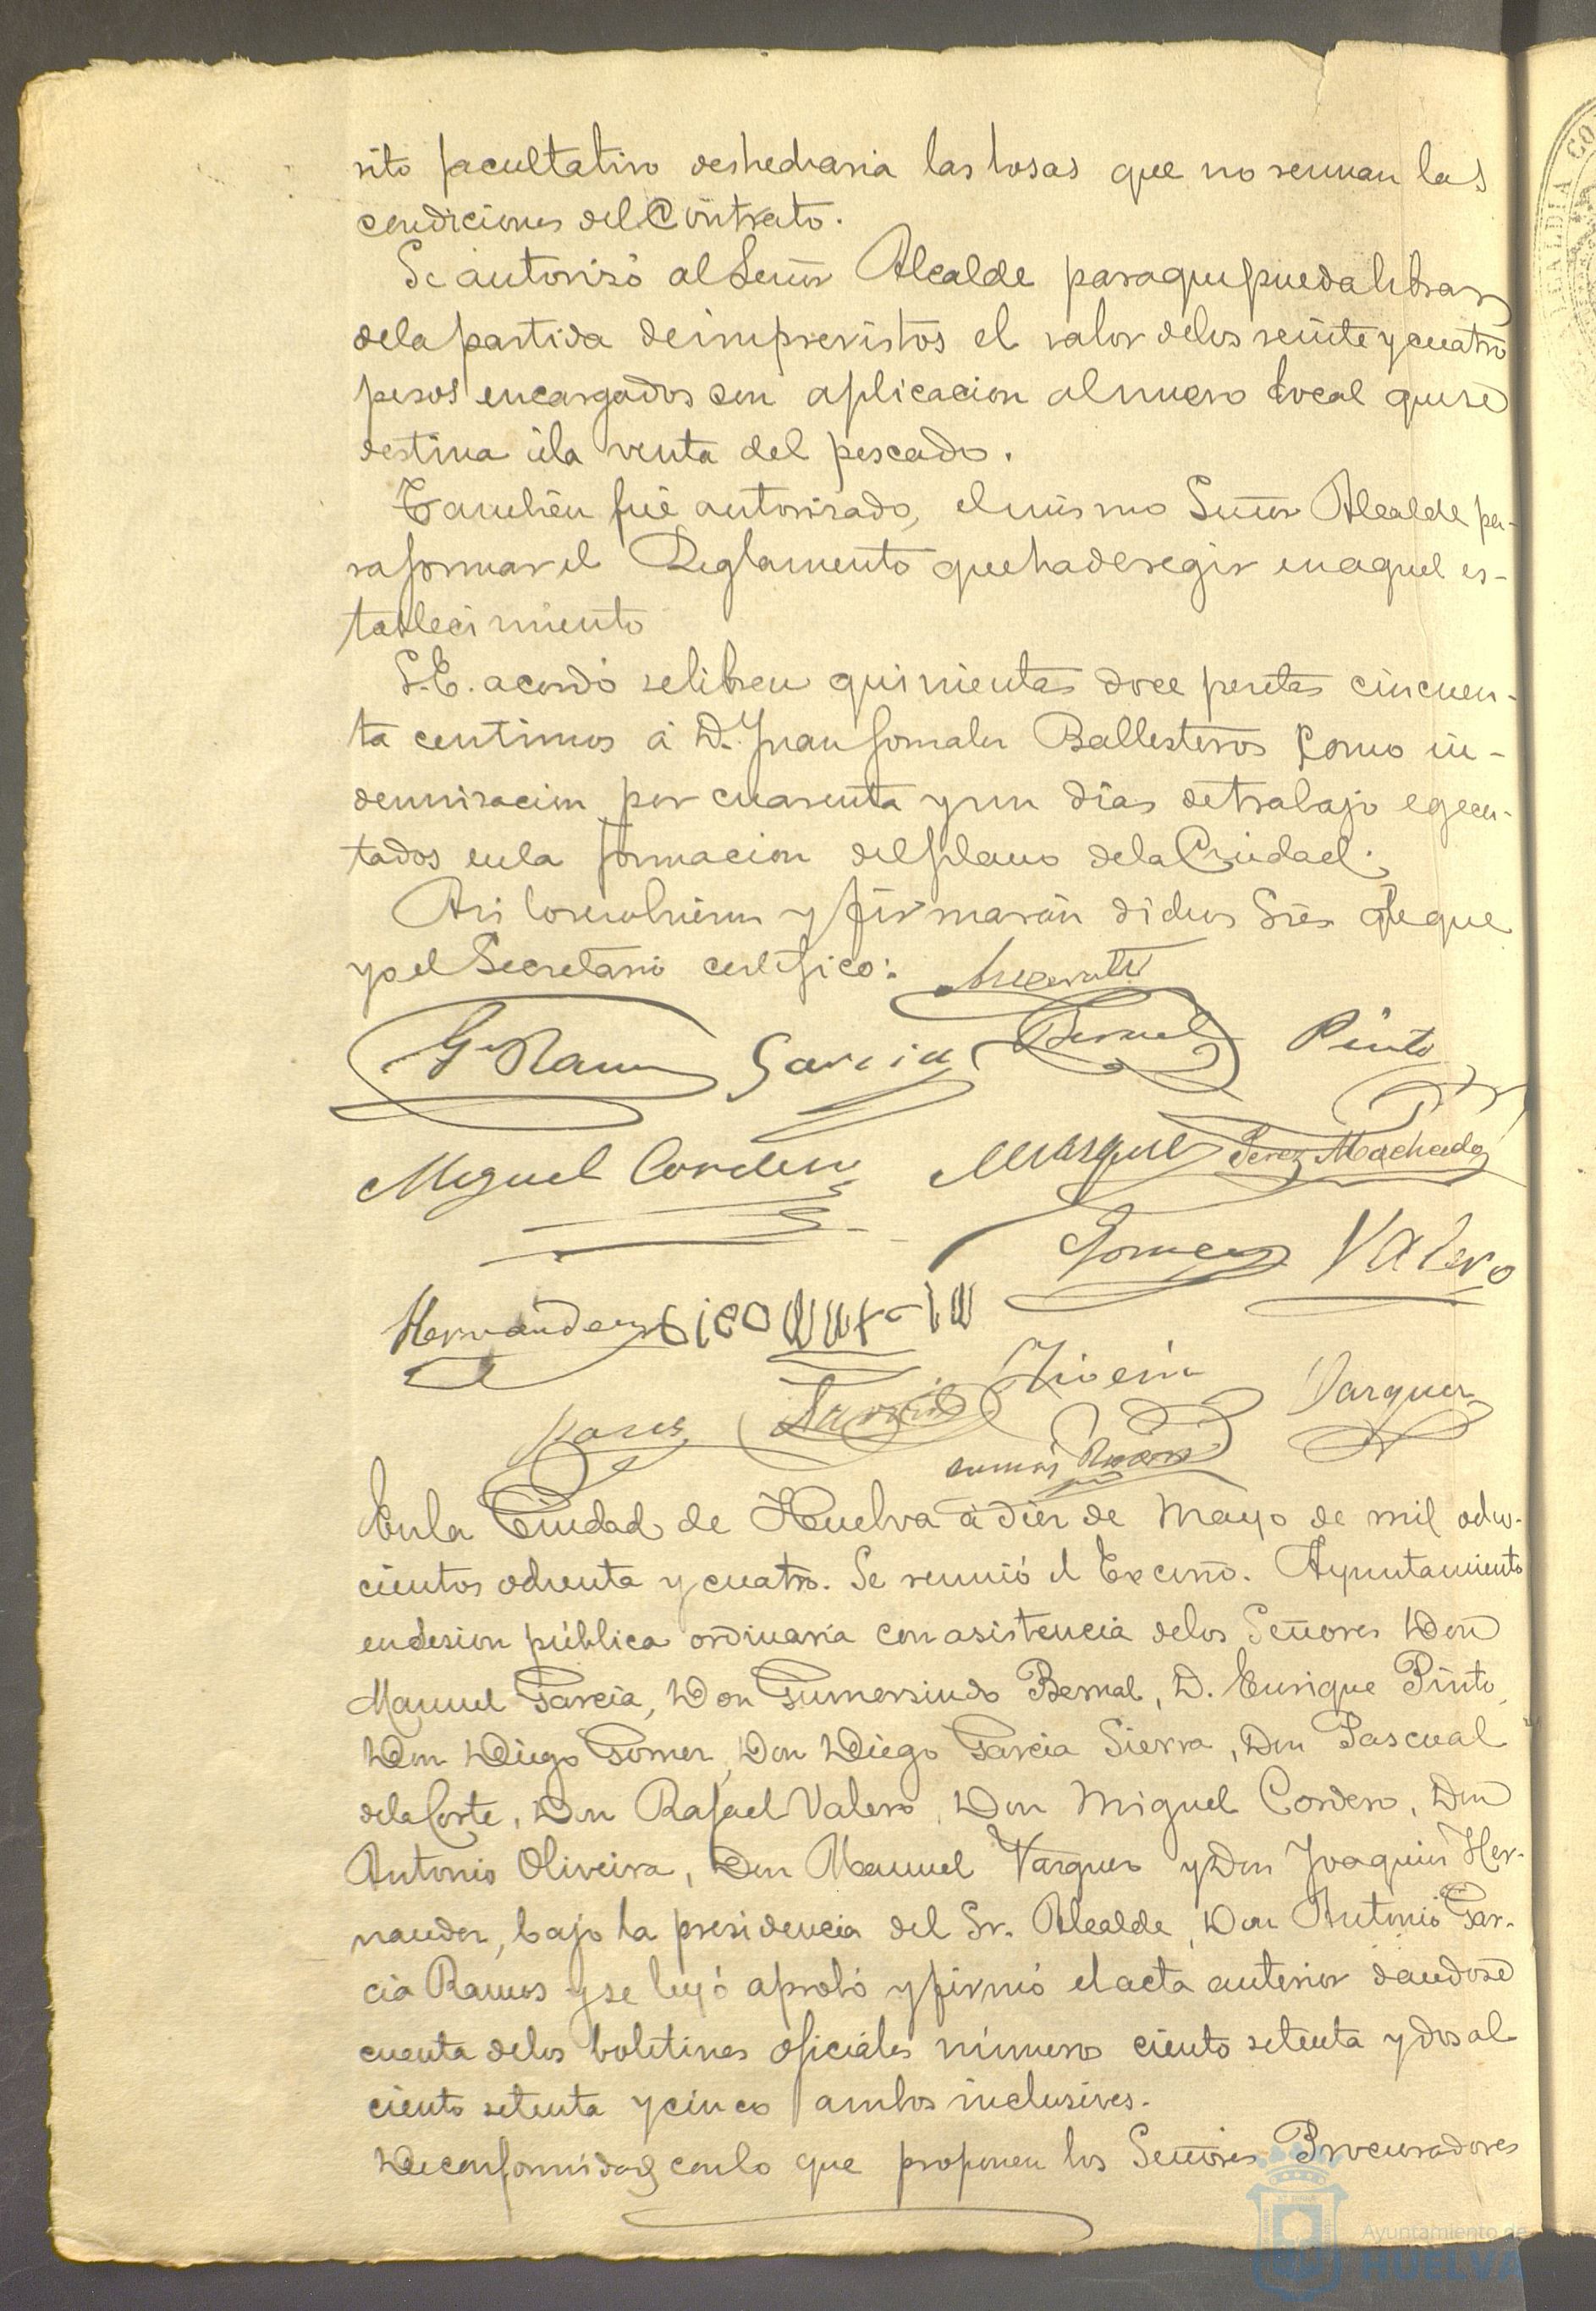 rito facultativo deshecharia las losas que no reunan las
condiciones del Contrato.
Se autorisó al Señor Alcalde para que pueda librar
de la partida de imprevistos el valor de los veinte y cuatro
pesos encargados con aplicacion al nuevo local que se
destina á la venta del pescado.
Tambien fué autorizado, el mismo Señor Alcalde pa-
ra formar el Reglamento que ha de regir en aquel es-
tablecimiento
S.E. acordó se libren quinientas doce pesetas cincuen-
ta centimos á D. Juan Gonzalez Ballesteros como in-
demnizacion por cuarenta y un dias de trabajo egecu-
tados en la formacion del plano de la Ciudad.
Asi lo resolvieron y firmarán dichos Sres de que
yo el Secretario certifico:
G. Ramos Garcia Bernal Pinto
Miguel Cordero Vazquez Perez Machado
Gomez Valero
Hernandez
Garcia Oliveira Vazquez
En la Ciudad de Huelva á diez de Mayo de mil ocho-
cientos ochenta y cuatro. Se reunió el Excmo. Ayuntamiento
en sesion pública ordinaria con asistencia de los Señores Don
Manuel Garcia, Don Gumersindo Bernal, D. Enrique Pinto,
Don Diego Gomez, Don Diego Garcia Sierra, Don Pascual
de la Corte, Don Rafael Valero, Don Miguel Cordero, Don
Antonio Oliveira, Don Manuel Vazquez y Don Joaquin Her-
nandez, bajo la presidencia del Sr. Alcalde, Don Antonio Gar-
cia Ramos y se leyó aprobó y firmó el acta anterior dandose
cuenta de los boletines oficiales número ciento setenta y dos al
ciento setenta y cinco ambos inclusives.
De conformidad con lo que proponen los Señores Procuradores
Ayuntamiento de
HUELVA